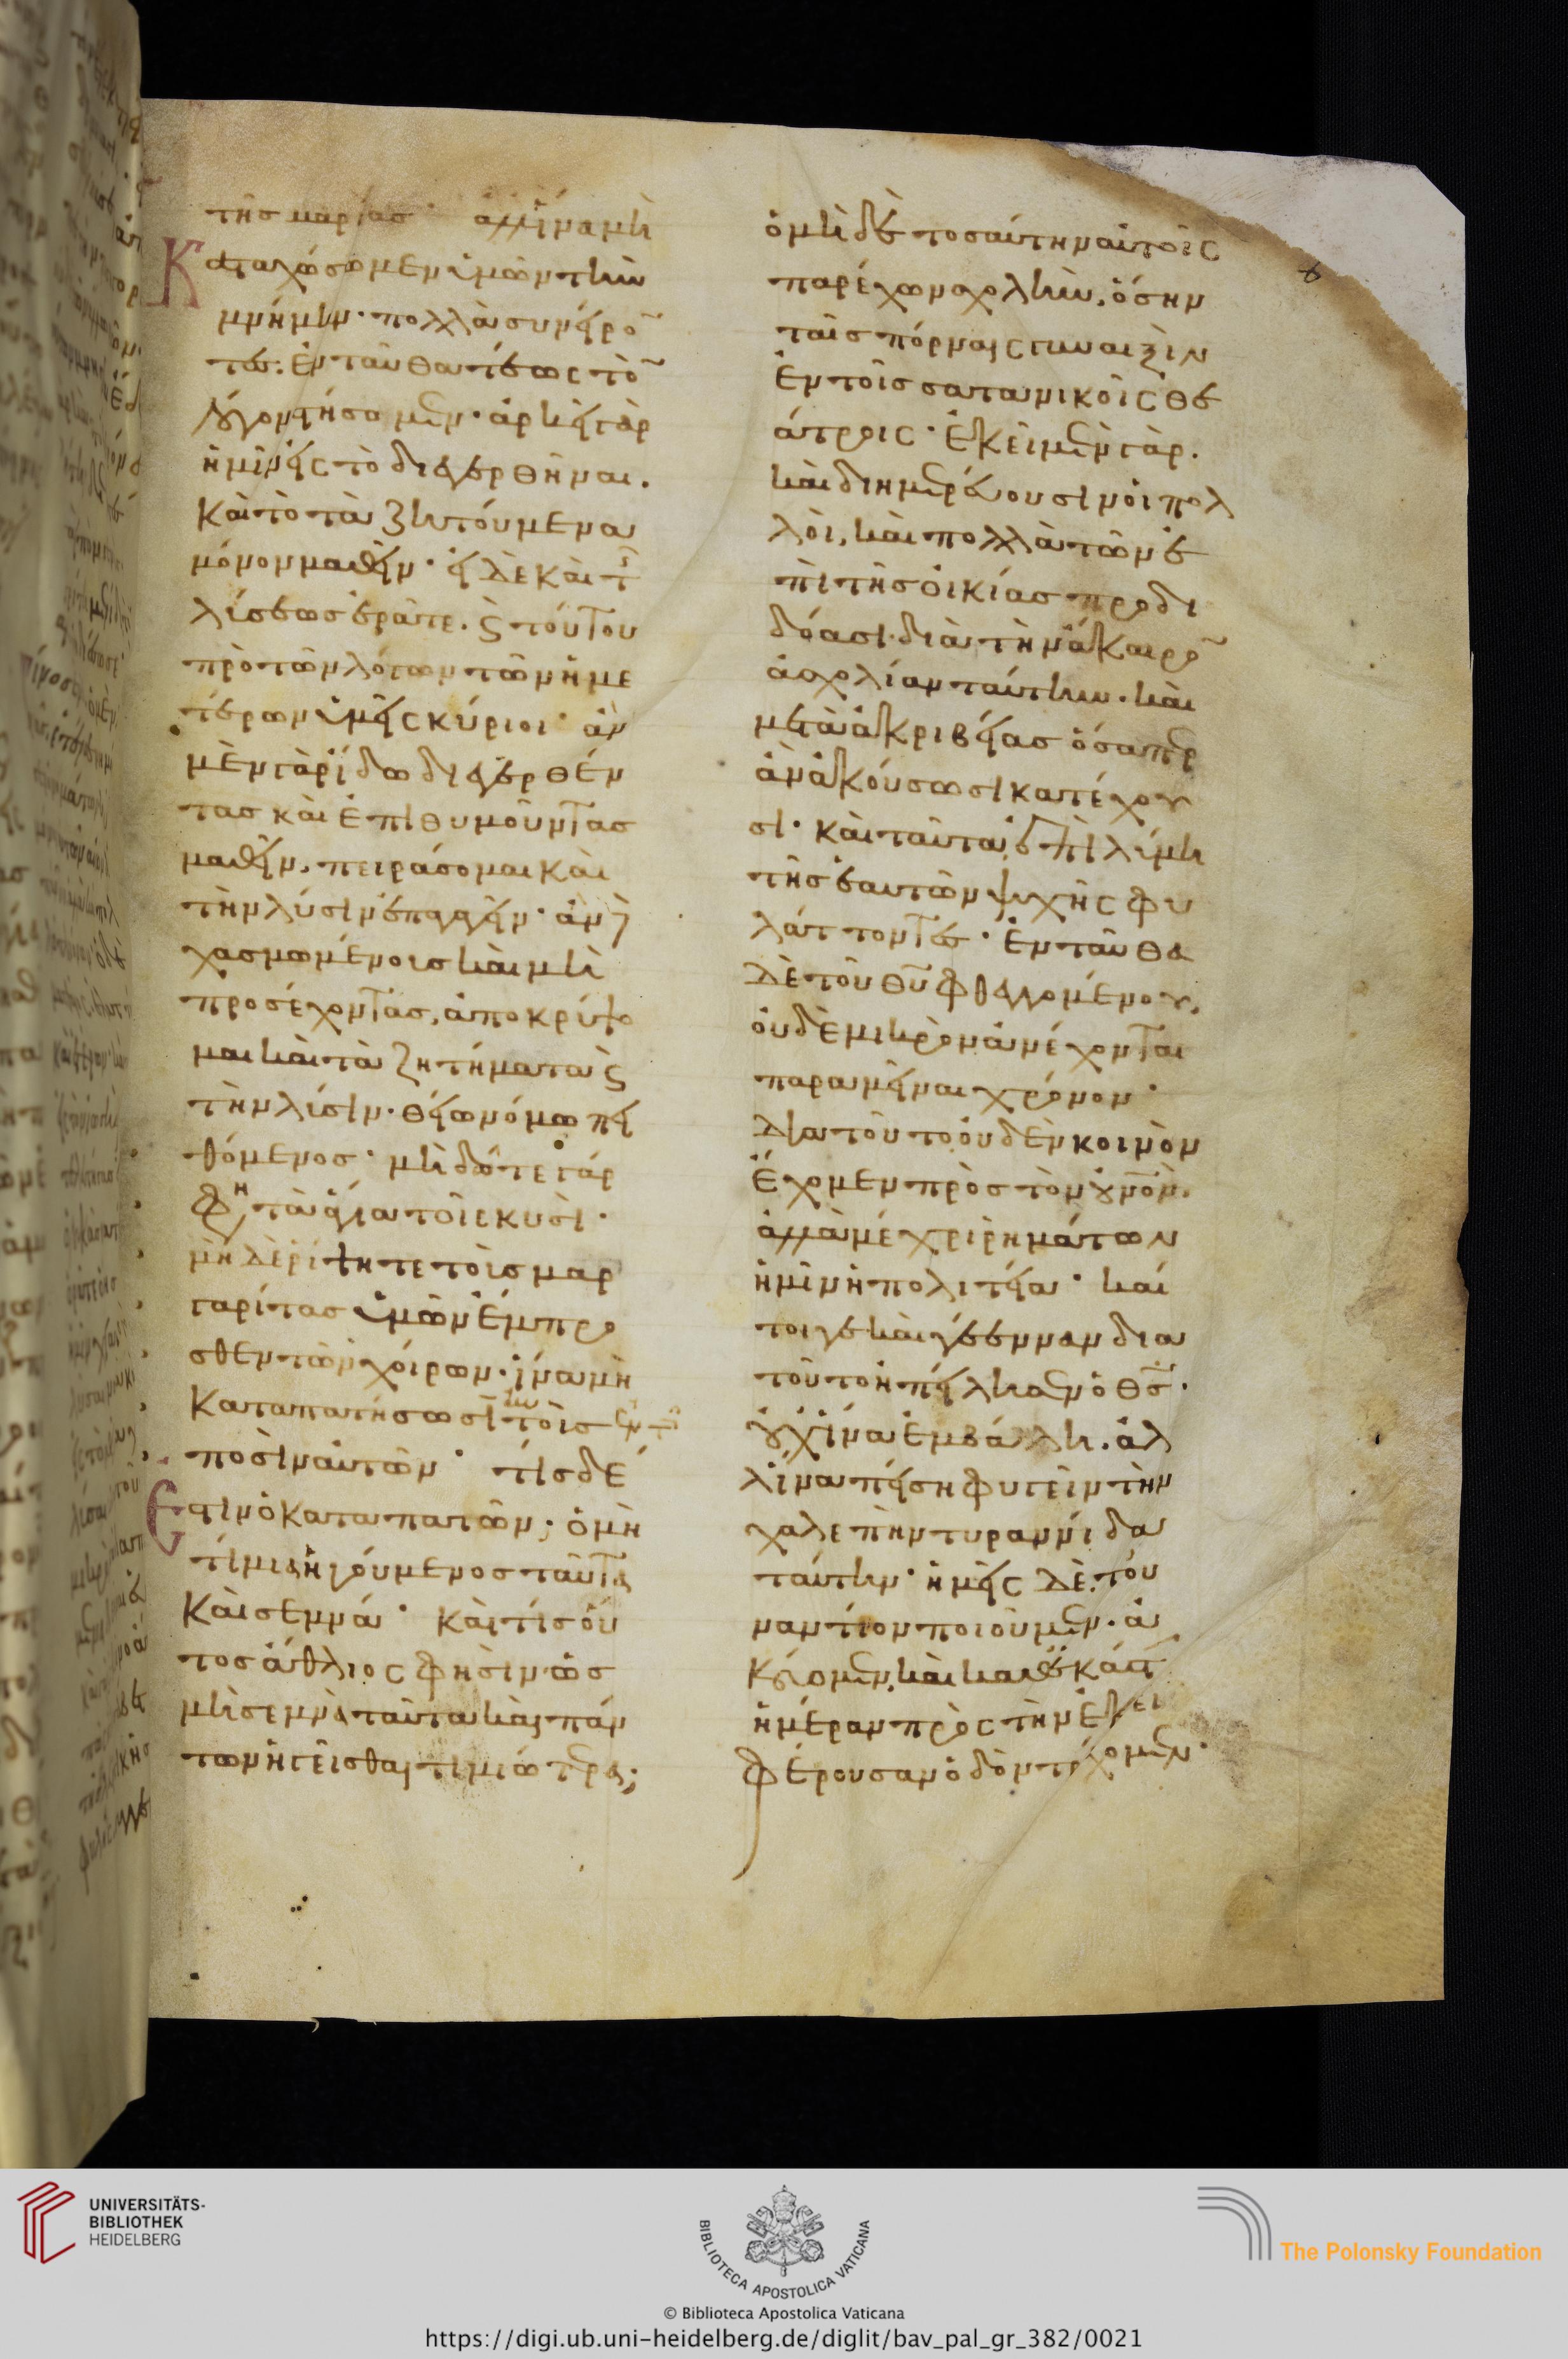 τῆς μαρίας· ἀλλ' ἵνα μὴ
Καταχώσωμεν ὑμῶν τὴν
μνήμην· πολλὰ συνείρο̅
τες· ἐνταῦθα τέως τὸ̅
λόγον στήσωμεν· ἀρκεῖ γὰρ
ἡμῖν εἰς τὸ διεγερθῆναι.
καὶ τὸ τὰ ζητούμενα
μόνον μαθεῖν· εἰ δὲ καὶ τ̅
λύσεως ἐρᾶτε. ϛ τούτου
πρὸ τῶν λόγων τῶν ἡμε
τέρων ὑμεῖς κύριοι· ἂν
μὲν γὰρ ἴδω διεγερθέν
τας καὶ ἐπιθυμοῦντας
μαθεῖν, πειράσομαι καὶ
τὴν λύσιν ἐπαγαγεῖν· ἂν δ
χασμωμένοις καὶ μὴ
προσέχοντας, ἀποκρύψο
μαι καὶ τὰ ζητήματα ϛ
τὴν λύσιν· θείω νόμω πει
θόμενος· μὴ δῶτε γάρ
φη, τὰ ἅγια τοῖς κυσὶ·
μηδὲ ῥίψητε τοὺς μαρ
γαρίτας ὑμῶν ἔμπρο
σθεν τῶν χοίρων· ἵνα μὴ
καταπατήσωσιν τοῖς
ποσὶν αὐτῶν· τίς δέ
Ἐστιν ὁ καταπατῶν; ὁ μὴ
τίμια ἡγούμενος ταῦτα
καὶ σεμνά· καὶ τίς οὕ
τος ἄθλιος φησὶν ὡς
μὴ σεμνὰ ταῦτα καὶ πάν
των ἡγεῖσθαι τιμιώτερα;
ὁ μὴ δὲ τοσαύτην αὐτοῖς
παρέχων σχολὴν, ὅσην
ταῖς πόρναις γυναιξὶν
ἐν τοῖς σατανικοῖς θε
άτροις· ἐκεῖ μὲν γὰρ.
καὶ διημερεύουσιν οἱ πολ
λοὶ, καὶ πολλὰ τῶν ἐ
πὶ τῆς οἰκίας προδι
δόασι· διὰ τὴν ἄκαιρο̅
ἀσχολίαν ταύτην· καὶ
μετὰ ἀκριβείας ὅσαπερ
ἂν ἀκούσωσι κατέχου
σι· καὶ ταῦτα ἐπὶ λύμη
τῆς ἑαυτῶν ψυχῆς φυ
λάττοντες· ἐνταῦθα
δὲ τοῦ θυ̅ φθεγγομένου,
οὐδὲ μικρὸν ἀνέχονται
παραμεῖναι χρόνον·
Διὰ τοῦτο οὐδὲν κοινὸν
ἔχομεν πρὸς τὸν οὐνο̅ν,
ἀλλὰ μέχρι ῥημάτων
ἡμῖν ἡ πολιτεία· καί
τοι γε καὶ γέενναν δια
τοῦτο ἠπείλησεν ὁ θς̅·
οὐχ ἵνα ἐμβάλλη. ἀλ
λ' ἵνα πείση φυγεῖν τὴν
χαλεπὴν τυραννίδα
ταύτην· ἡμεῖς δὲ. τοὐ
ναντίον ποιοῦμεν· ἀ
κούομεν, καὶ καθεκάστ
ἡμέραν πρὸς τὴν ἐκεῖ
φέρουσαν ὁδὸν τρέχομεν·
6
UNIVERSITÄTS-
BIBLIOTHEK
HEIDELBERG
BIBLIOTECA APOSTOLICA VATICANA
The Polonsky Foundation
© Biblioteca Apostolica Vaticana
https://digi.ub.uni-heidelberg.de/diglit/bav_pal_gr_382/0021